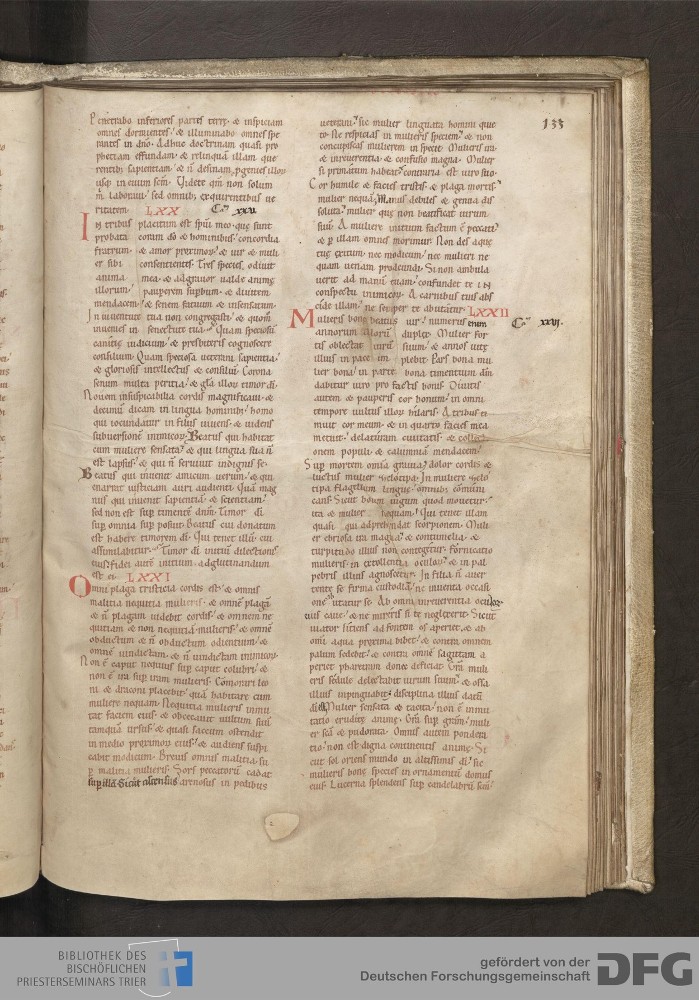 Penetrabo inferiores partes terrę· & inspiciam
omnes dormientes· & illuminabo omnes spe
rantes in dn̄o· Adhuc doctrinam quasi pro
phetiam effundam· & relinquā illam que
rentib; sapientiam· & n̄ desinam
usq; in euum scm̄· Videte qm̄ non solum
m̄ laboraui· sed omnib; exquirentibus ue
ritatem· LXX
In tribus placitum est spū meo· quę sunt
probata coram dō & hominibus· concordia
fratrum· & amor proximorū· & uir & muli
er sibi consentientes· Tres species odiuit
anima mea· & adgrauor ualde animę
illorum· pauperem supbum· & diuitem
mendacem· & senem fatuum & insensatum·
In iuuentute tua non congregasti· & quom̄
inuenies in senectute tua· Quam speciosū
canitię iudicium· & presbiteris cognoscere
consilium· Quam speciosa ueteranis sapientia·
& gloriosis intellectus & consiliū· Corona
senum multa peritia· & glā illorū timor dī·
Nouem insuspicabilia cordis magnificaui· &
decimū dicam in lingua hominib; homo
qui iocundatur in filiis uiuens· & uidens
subuersionē inimicorū· Beatus qui habitat
cum muliere sensata· & qui lingua sua n̄
est lapsus· & qui n̄ seruiuit indignis se·
Beatus qui inuenit amicum uerum· & qui
enarrat iusticiam auri audienti· Quā mag
nus qui inuenit sapientiā· & scientiam·
sed non est sup timentē dnm̄· Timor dī
sup omnia sup posuit· Beatus cui donatum
est habere timorem dī· Qui tenet illū· cui
assimilabitur· Timor dī initiū dilectionis
eius· fidei autē initium adglutinandum
est ei· LXXI
Omnis plaga tristicia cordis est· & omnis
malitia nequitia mulieris· & omnē plagā
& n̄ plagam uidebit cordis· & omnem ne
quitiam & non nequitiā mulieris· & omnē
obductum & n̄ obductum odientium· &
omnē uindictam· & n̄ uindictam inimicorū·
Non ē caput nequius sup caput colubri· &
non ē ira sup iram mulieris· Cōmorari leo
ni & draconi placebit· quā habitare cum
muliere nequam· Nequitia mulieris inmu
tat faciem eius· & obcecauit uultum suū
tamquā ursus· & quasi saccum ostendit
in medio proximorū eius· & audiens suspi
rabit modicum· Breuis omnis malitia su
p malitiā mulieris· Sors peccatorū cadat
sup illā· Sicut ascensus arenosus in pedibus
Cap̄ xxxi
133
ueterani· sic mulier linguata homini quie
to· Ne respicias in mulieris speciem· & non
concupiscas mulierem in specie· Mulieris ira
& inreuerentia· & confusio magna· Mulier
si primatum habeat· contraria est uiro suo·
Cor humile & facies tristis· & plaga mortis
mulier nequā· Manus debiles & genua dis
soluta· mulier quę non beatificat uirum
suū· A muliere initium factum ē peccati·
& p illam omnes morimur· Non des aquę
tuę exitum· nec modicum· nec mulieri ne
quam ueniam prodeundi· Si non ambula
uerit ad manū tuam· confundet te in
conspectu inimicorū· A carnibus tuis abs
cide illam· ne semper te abutatur· LXXII
Mulieris bonę beatus uir· numerus enim
annorum illorū duplex· Mulier for
tis oblectat uirū suum· & annos uitę
illius in pace implebit· Pars bona mu
lier bona· in parte bona timentium dm̄
dabitur uiro pro factis bonis· Diuitis
autem & pauperis cor bonum· in omni
tempore uultus illorū hilaris· A tribus ti
muit cor meum· & in quarto facies mea
metuit· delaturam ciuitatis· & collecti
onem populi· & calumniā mendacem·
Sup mortem omnia grauia· dolor cordis &
luctus mulier zelotipa· In muliere zelo
tipa flagellum linguę· omnib; commu
nicans· Sicut boum iugum quod mouetur·
ita & mulier nequam· Qui tenet illam
quasi qui adprehendat scorpionem· Muli
er ebriosa ira magna· & contumelia· &
turpitudo illius non contegetur· Fornicatio
mulieris in extollentia oculorū· & in pal
pebris illius agnoscetur· In filia n̄ auer
tente se firma custodiā· ne inuenta occasi
one utatur se· Ab omni inreuerentia oculorū
eius caue· & ne mireris si te neglexerit· Sicut
uiator sitiens ad fontem os aperiet· & ab
omī aqua proxima bibet· & contra omnem
palum sedebit· & contra omnē sagittam a
periet pharetram donec deficiat· Grā muli
eris sedule delectabit uirum suum· & ossa
illius inpinguabit· disciplina illius datū
dī est· Mulier sensata & tacita· non ē inmu
tatio eruditę animę· Grā sup grām· muli
er scā & pudorata· Omnis autem pondera
tio· non est digna continentis animę· Si
cut sol oriens mundo in altissimis dī· sic
mulieris bonę species in ornamentū domus
eius· Lucerna splendens sup candelabrū scm̄·
Cap̄ xxvi·
BIBLIOTHEK DES
BISCHÖFLICHEN
PRIESTERSEMINARS TRIER
gefördert von der
Deutschen Forschungsgemeinschaft
DFG